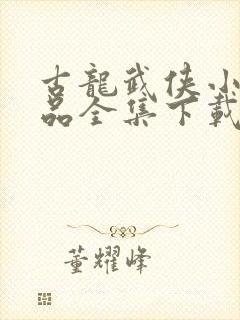 古龍武俠小
品全集下載
董耀峰